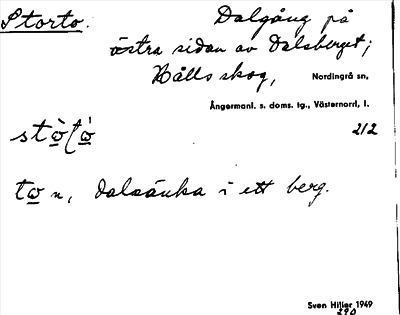 Storto. Dalgång på
östra sidan av Dalsberget;
Hålls skog, Nordingrå sn,
Ångermanl. s. doms. tg., Västernorrl, l.
212
to n, dalsänka i ett berg.
Sven Hiller 1949
290